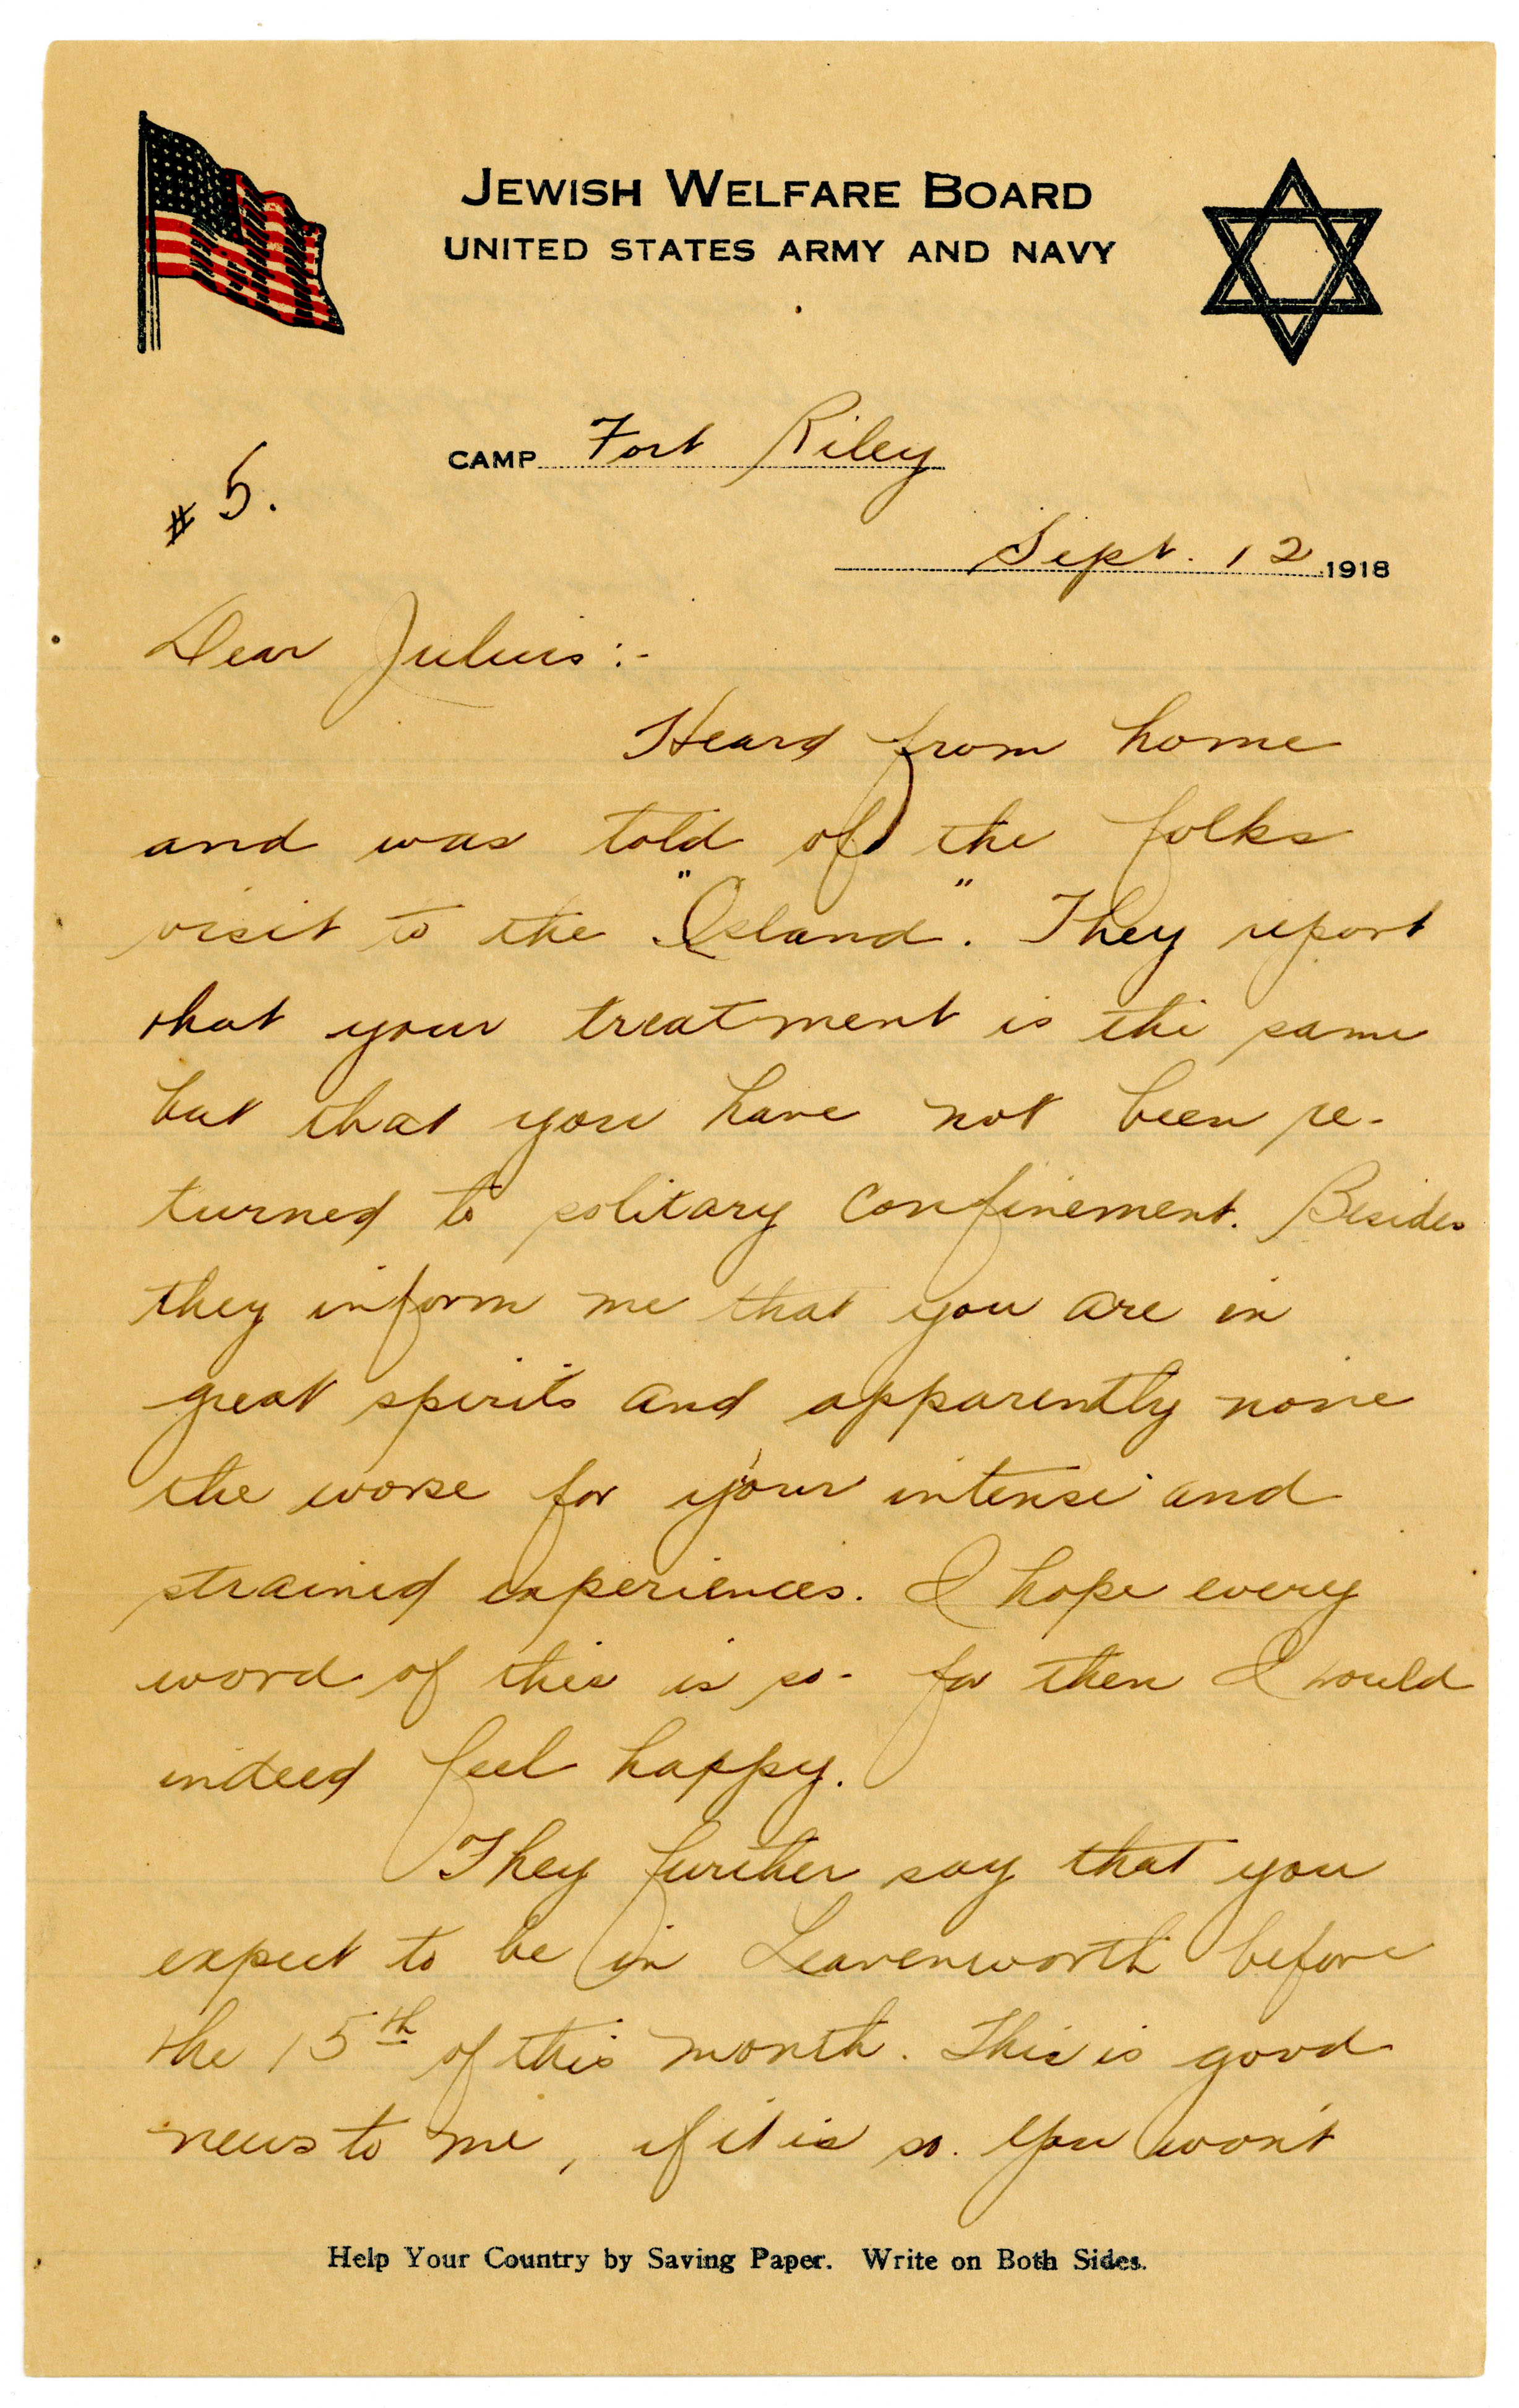 JEWISH WELFARE BOARD
UNITED STATES ARMY AND NAVY
CAMP Fort Riley
# 5.
Sept. 12 1918
Dear Julius :-
Heard from home
and was told of the folks
visit to the "Island". They report
that your treatment is the same
but that you have not been re-
turned to solitary confinement. Besides
they inform me that you are in
great spirits and apparently none
the worse for your intense and
strained experiences. I hope every
word of this is so - for then I would
indeed feel happy.
They further say that you
expect to be in Leavenworth before
the 15th of this month. This is good
news to me, if it is so. You won't
Help Your Country by Saving Paper. Write on Both Sides.